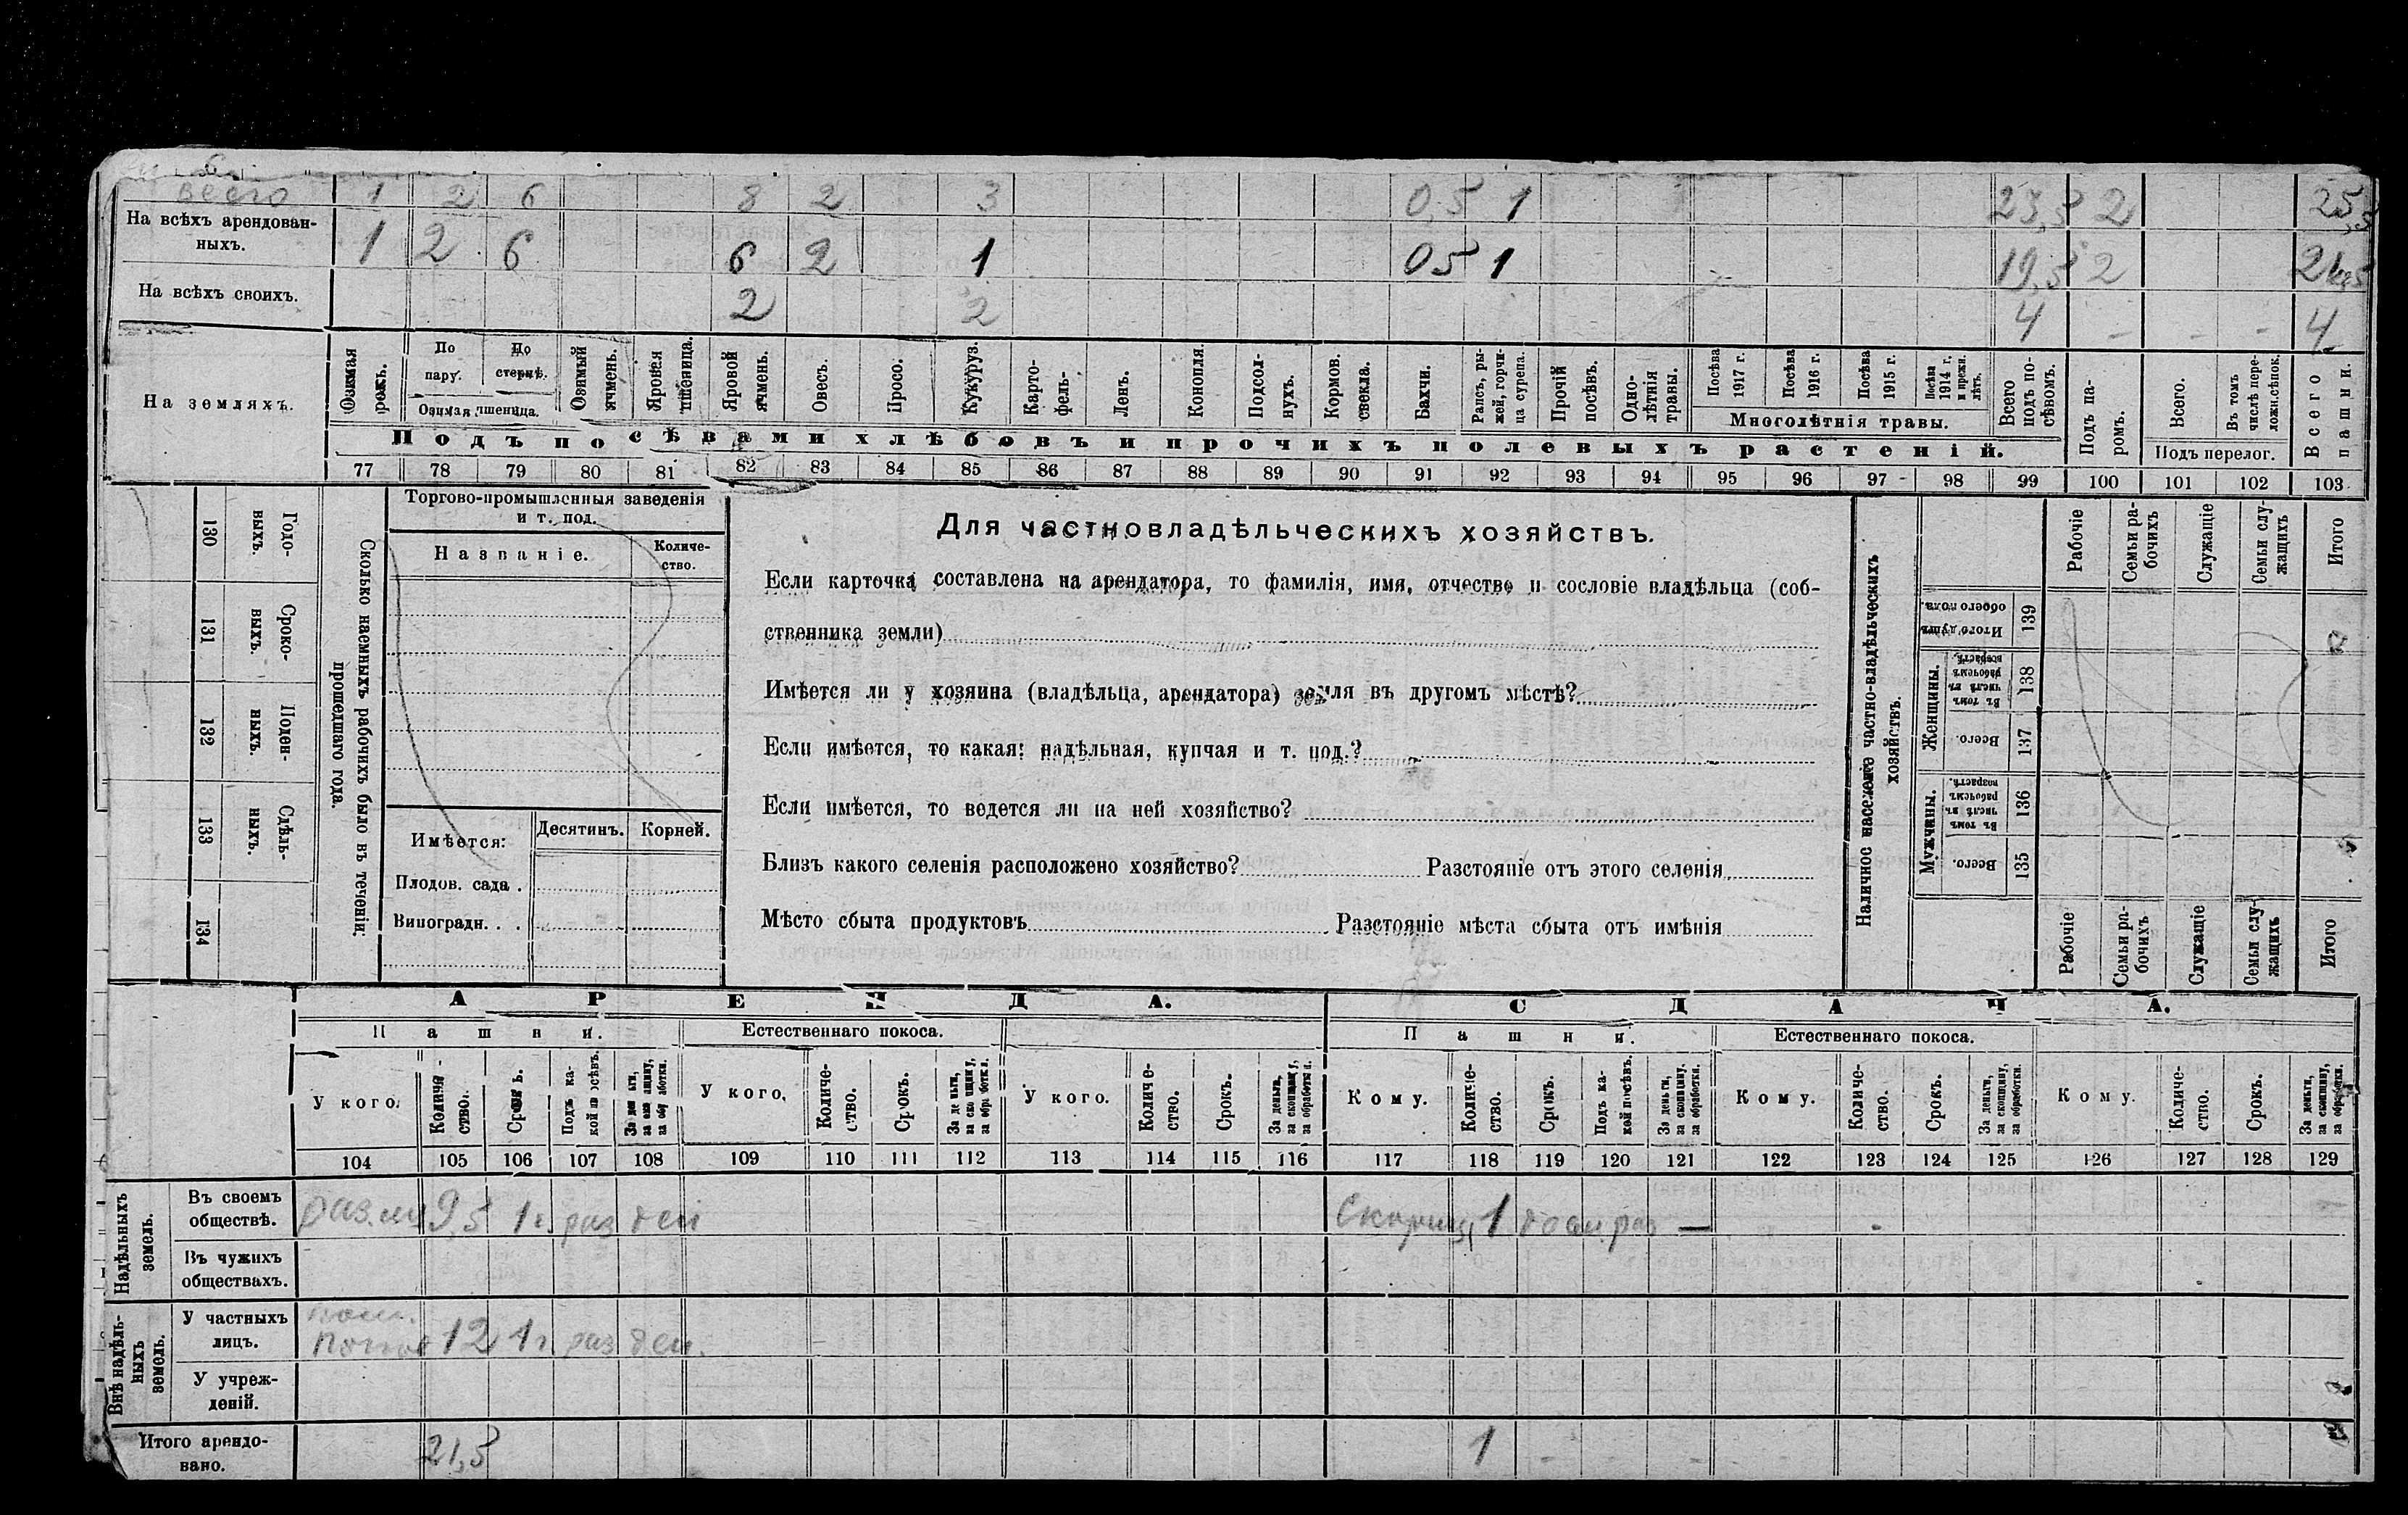 всего 1 2 6 8 2 3 0,5 1 23,5 2 25,5
На всѣхъ арендован-
ныхъ. 1 2 6 6 2 1 05 1 19,5 2 21,5
На всѣхъ своихъ. 2 2 4 - - - 4
На земляхъ.
Озимая рожь.
По пару.
По стернѣ.
Озимая пшеница.
Озимый ячмень.
Яровая пшеница.
Яровой ячмень.
Овесъ.
Просо.
Кукуруз.
Карто-
фель-
Ленъ.
Конопля.
Подсол-
нухъ.
Кормов.
свекла.
Бахчи.
Рапсъ, ры-
жей, горчи-
ца сурепа.
Прочій
посѣвъ.
Одно-
лѣтнія
травы.
Посѣва
1917 г.
Посѣва
1916 г.
Посѣва
1915 г.
Посѣва
1914 г.
и прежн.
лѣтъ.
Многолѣтнія травы.
Всего
подъ по-
сѣвомъ.
Подъ па-
ромъ.
Всего.
Въ томъ
числѣ пере-
ложн.сѣнок.
Подъ перелог.
Всего
пашни.
Подъ посѣвами хлѣбовъ и прочихъ полевыхъ растеній.
77 78 79 80 81 82 83 84 85 86 87 88 89 90 91 92 93 94 95 96 97 98 99 100 101 102 103
130
Годо-
выхъ.
131
Сроко-
выхъ.
132
Поден-
ныхъ.
133
Сдѣль-
ныхъ.
134
Сколько наемныхъ рабочихъ было въ теченіи
прошедшаго года.
Торгово-промышленныя заведенія
и т. под.
Названіе.
Количе-
ство.
Имѣется:
Десятинъ.
Корней.
Плодов. сада .
Виноградн. . .
Для частновладѣльческихъ хозяйствъ.
Если карточка составлена на арендатора, то фамилія, имя, отчество и сословіе владѣльца (соб-
ственника земли)
Имѣется ли у хозяина (владѣльца, арендатора) земля въ другомъ мѣстѣ?
Если имѣется, то какая: надѣльная, купчая и т. под.?
Если имѣется, то ведется ли на ней хозяйство?
Близъ какого селенія расположено хозяйство? Разстояніе отъ этого селенія
Мѣсто сбыта продуктовъ Разстояніе мѣста сбыта отъ имѣнія
Наличное населеніе частно-владѣльческихъ
хозяйствъ.
Рабочіе
Семьи ра-
бочихъ
Служащіе
Семьи слу-
жащихъ
Итого
Итого душъ
обоего пола.
139
Женщины.
Въ томъ
числѣ въ
рабочемъ
возрастѣ.
138
Всего.
137
Мужчины.
Въ томъ
числѣ въ
рабочемъ
возрастѣ.
136
Всего.
135
Рабочіе
Семьи ра-
бочихъ
Служащіе
Семьи слу-
жащихъ
Итого
АРЕНДА.
СДАЧА.
Пашни.
Естественнаго покоса.
Пашни.
Естественнаго покоса.
У кого.
Количе-
ство.
Срокъ.
Подъ ка-
кой посѣвъ.
За деньги,
за скопщину,
за обработки.
У кого.
Количе-
ство.
Срокъ.
За деньги,
за скопщину,
за обработки.
У кого.
Количе-
ство.
Срокъ.
За деньги,
за скопщину,
за обработки.
Кому.
Количе-
ство.
Срокъ.
Подъ ка-
кой посѣвъ.
За деньги,
за скопщину,
за обработки.
Кому.
Количе-
ство.
Срокъ.
За деньги,
за скопщину,
за обработки.
Кому.
Количе-
ство.
Срокъ.
За деньги,
за скопщину,
за обработки.
104 105 106 107 108 109 110 111 112 113 114 115 116 117 118 119 120 121 122 123 124 125 126 127 128 129
Надѣльныхъ
земель.
Въ своемъ
обществѣ. 9,5 1 г. раз ден 1 раз —
Въ чужихъ
обществахъ.
Внѣ надѣль-
ныхъ
земель.
У частныхъ
лицъ. 12 1 г. раз ден.
У учреж-
деній.
Итого арендо-
вано. 21,5 1